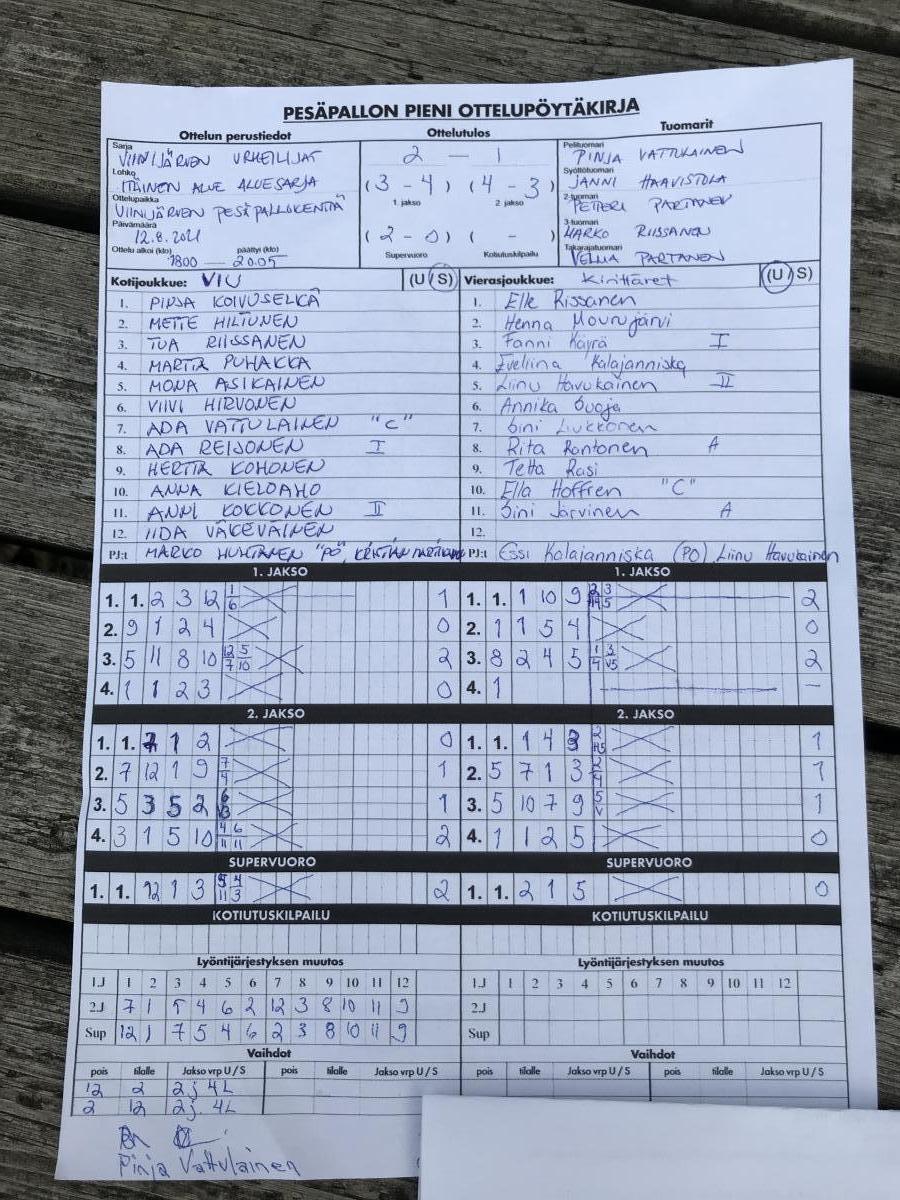 PESÄPALLON PIENI OTTELUPÖYTÄKIRJA
Ottelun perustiedot
Sarja
VIINIJÄRVEN URHEILIJAT
Lohko
ITÄINEN ALUE ALUESARJA
Ottelupaikka
VIINIJÄRVEN PESÄPALLOKENTÄ
Päivämäärä
12.8.2021
Ottelu alkoi (klo) päättyi (klo)
1800 — 20.05
Ottelutulos
2 — 1
(3 - 4) (4 - 3)
1. jakso 2. jakso
(2 - 0) ( - )
Supervuoro Kotiutuskilpailu
Tuomarit
Pelituomari
PINJA VATTULAINEN
Syöttötuomari
JANNI HAAVISTOLA
2-tuomari
PETTERI PARTANEN
3-tuomari
MARKO RIISSANEN
Takarajatuomari
VELMA PARTANEN
Kotijoukkue: VIU (U / S)
1. PINJA KOIVUSELKÄ
2. METTE HILTUNEN
3. TUA RIISSANEN
4. MARTTA PUHAKKA
5. MONA ASIKAINEN
6. VIIVI HIRVONEN
7. ADA VATTULAINEN "C"
8. ADA REIJONEN I
9. HERTTA KOHONEN
10. ANNA KIELOAHO
11. ANNI KOKKONEN II
12. IIDA VÄKEVÄINEN
PJ:t MARKO HUHTANEN "PÖ",
Vierasjoukkue: Kirittäret (U / S)
1. Elle Rissanen
2. Henna Mourujärvi
3. Fanni Käyrä I
4. Eveliina Kalajanniska
5. Liinu Havukainen II
6. Annika Suoja
7. Sini Liukkonen
8. Rita Rantonen A
9. Tetta Rasi
10. Ella Hoffren "C"
11. Sini Järvinen A
12.
PJ:t Essi Kalajanniska (PO) Liinu Havukainen
1. JAKSO
1. 1. 2 3 12 1/6 1
2. 9 1 2 4 0
3. 5 11 8 10 12/7 5/10 2
4. 1 1 2 3 0
2. JAKSO
1. 1. 1 2 0
2. 7 12 1 9 7/4 1
3. 5 3 5 2 1
4. 3 1 5 10 4/11 6/11 2
SUPERVUORO
1. 1. 12 1 3 5/11 4/3 2
KOTIUTUSKILPAILU
1. JAKSO
1. 1. 1 10 9 2
2. 1 1 5 4 0
3. 8 2 4 5 1/4 3/V5 2
4. 1 –
2. JAKSO
1. 1. 1 4 3 1
2. 5 7 1 3 2/4 1
3. 5 10 7 9 5/V 1
4. 1 1 2 5 0
SUPERVUORO
1. 1. 2 1 5 0
KOTIUTUSKILPAILU
Lyöntijärjestyksen muutos
1.J 1 2 3 4 5 6 7 8 9 10 11 12
2.J 7 1 5 4 6 2 12 3 8 10 11 9
Sup 12 1 7 5 4 6 2 3 8 10 11 9
Vaihdot
pois tilalle Jakso vrp U / S pois tilalle Jakso vrp U / S
12 2 2j 4L
2 12 2j. 4L
Lyöntijärjestyksen muutos
1.J 1 2 3 4 5 6 7 8 9 10 11 12
2.J
Sup
Vaihdot
pois tilalle Jakso vrp U / S pois tilalle Jakso vrp U / S
Pinja Vattulainen